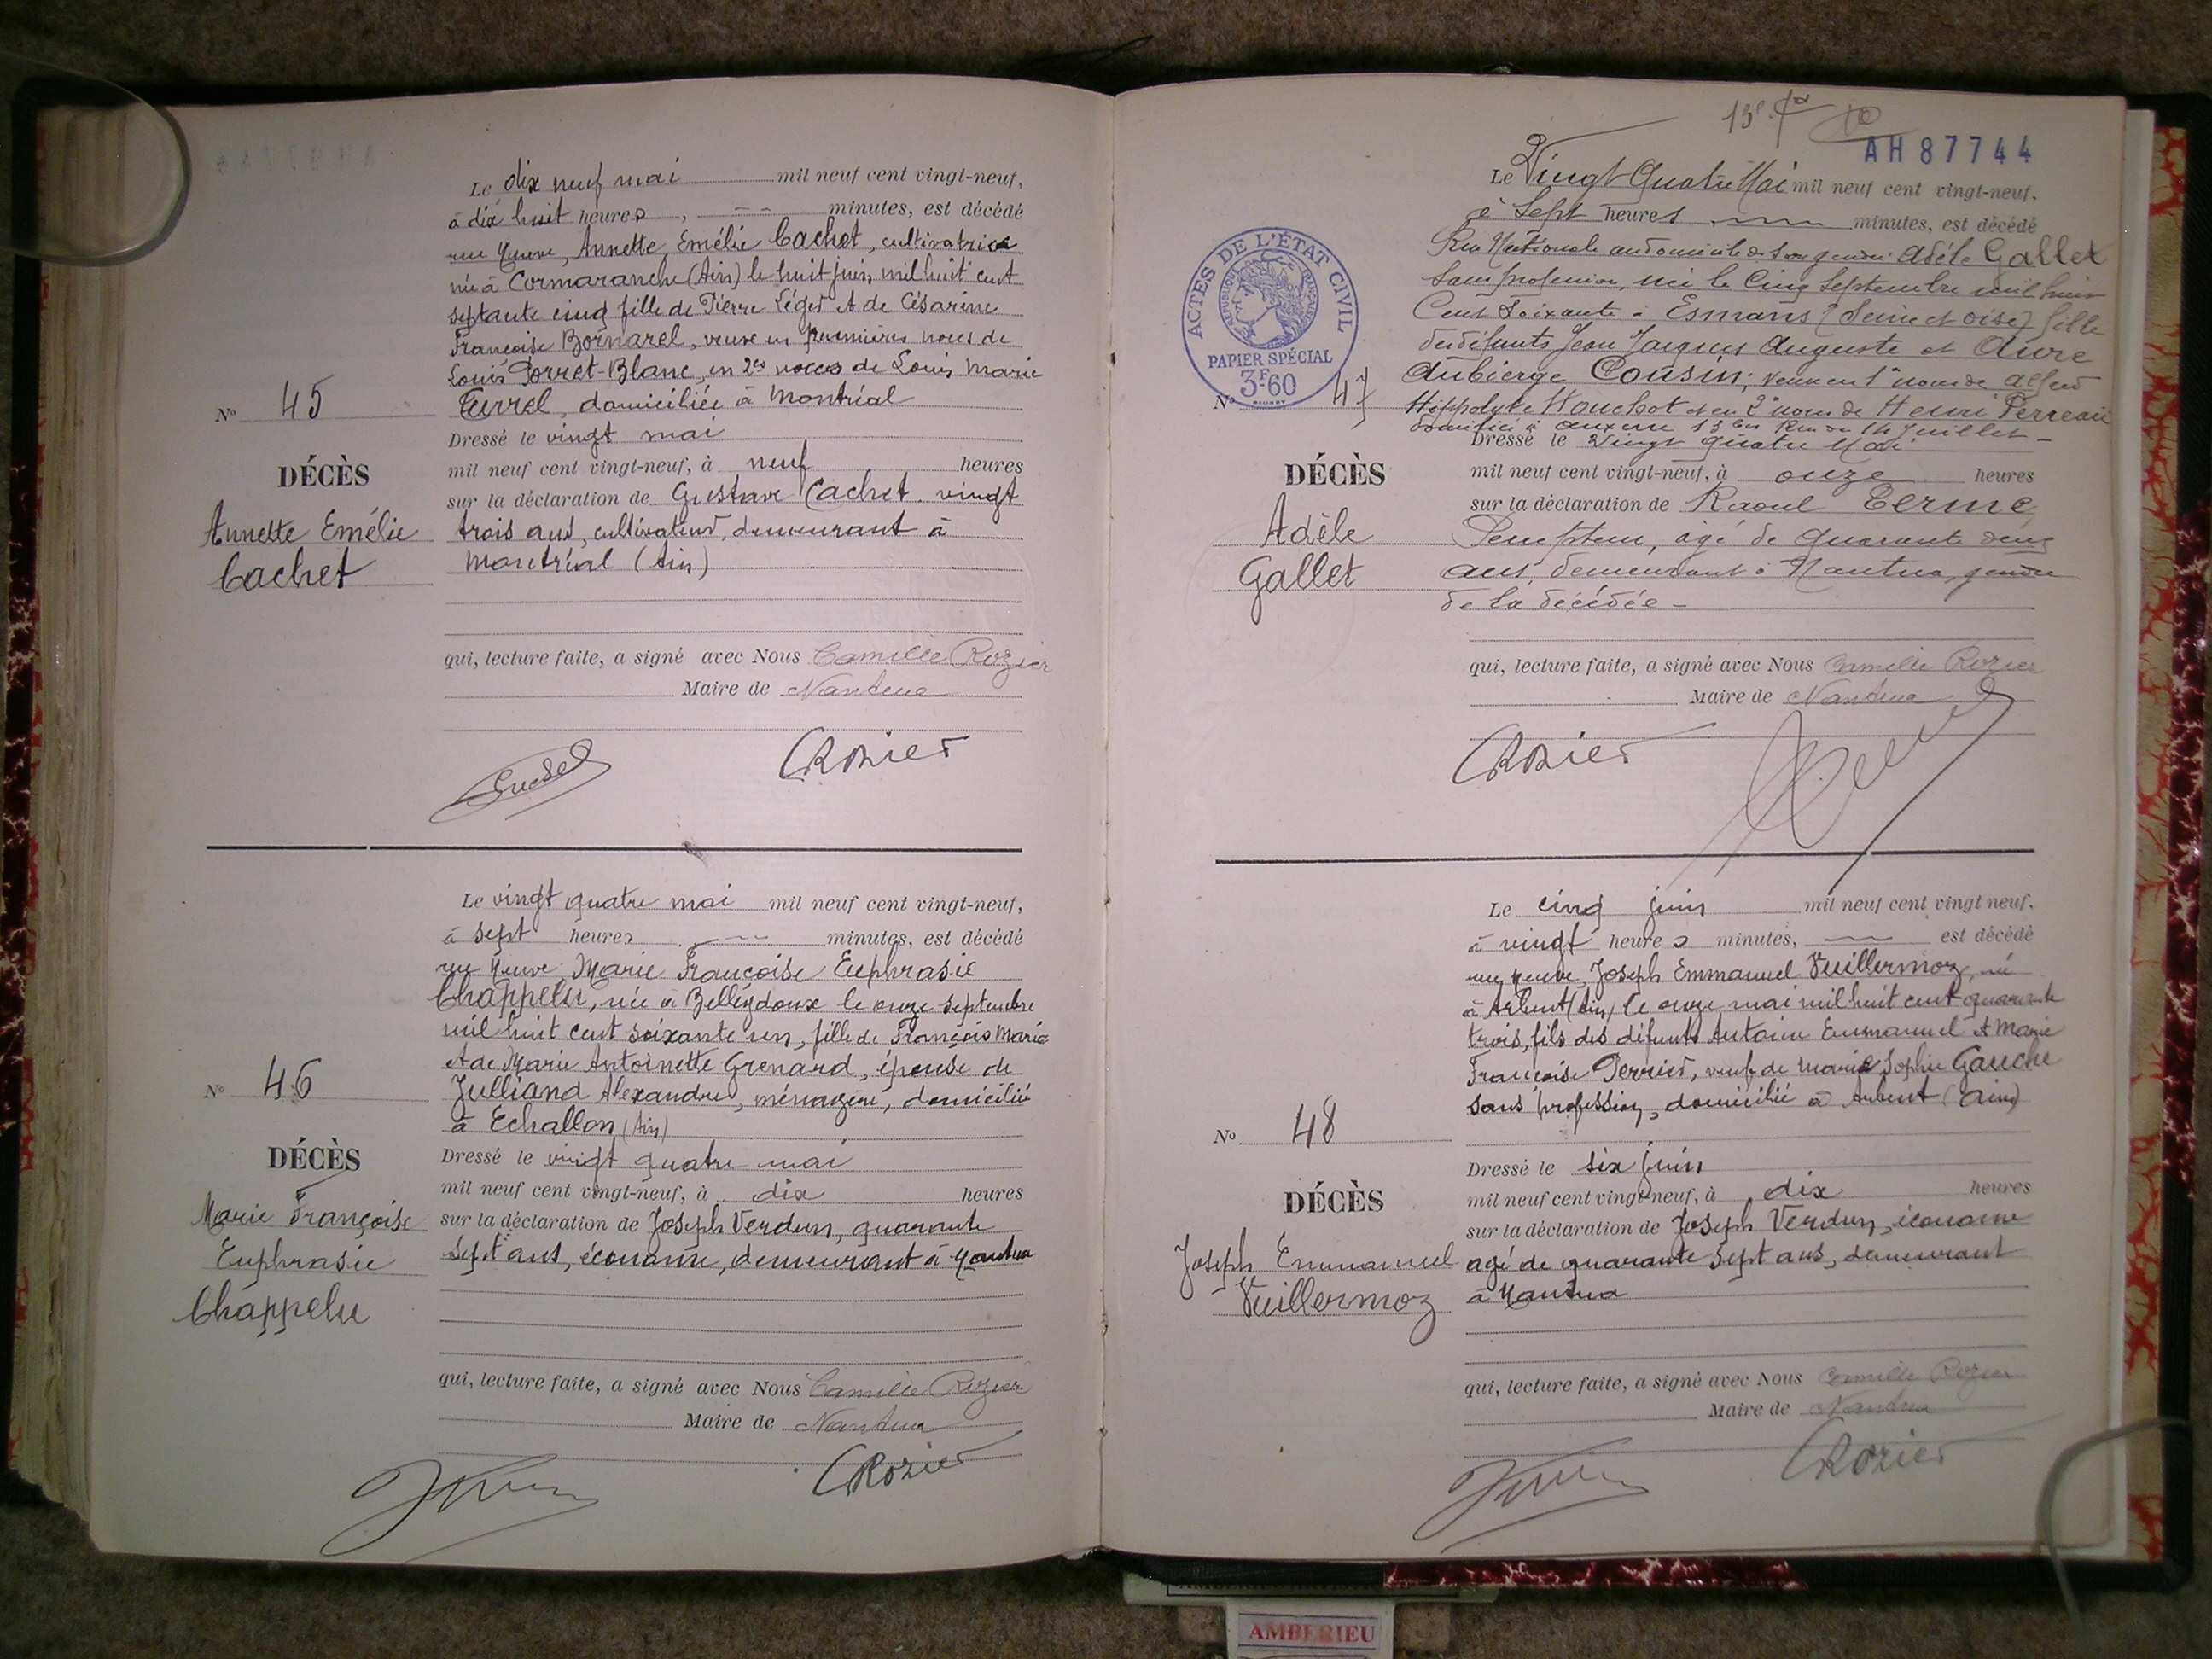 Le dix neuf mai mil neuf cent vingt-neuf,
à dix huit heures, minutes, est décédé
rue Neuve, Annette Emélie Cachet, cultivatrice
née à Cormaranche (Ain) le huit juin mil huit cent
septante cinq fille de Pierre Léger et de Césarine
Françoise Bornarel, veuve en premières noces de
Louis Porret-Blanc, en 2es noces de Louis Marie
domiciliée à Montréal
No 45
Dressé le vingt mai
mil neuf cent vingt-neuf, à neuf heures
DÉCÈS
sur la déclaration de Gustave Cachet. vingt
Annette Emélie
trois ans, cultivateur, demeurant à
Cachet
Montréal (Ain)
qui, lecture faite, a signé avec Nous Camille Rozier
Maire de Nantua
CRozier
Le vingt quatre mai mil neuf cent vingt-neuf,
à sept heures minutes, est décédé
rue Neuve, Marie Françoise Euphrasie
Chappelu, née à Belleydoux le onze septembre
mil huit cent soixante un, fille de François Marie
et de Marie Antoinette Grenard, épouse de
No 46
Julliand Alexandre, ménagère, domiciliée
à Echallon (Ain)
DÉCÈS
Dressé le vingt quatre mai
mil neuf cent vingt-neuf, à dix heures
Marie Françoise
sur la déclaration de Joseph Verdun, quarante
Euphrasie
sept ans, économe, demeurant à Nantua
Chappelu
qui, lecture faite, a signé avec Nous Camille Rozier
Maire de Nantua
CRozier
AH87744
Le Vingt Quatre Mai mil neuf cent vingt-neuf,
à Sept heures minutes, est décédé
Rue Nationale au domicile de son gendre Adèle Gallet
Sans profession, née le Cinq Septembre mil huit
Cent Soixante à Esmans (Seine et Oise) fille
des défunts Jean Jacques Auguste et Aure
Aubierge Cousin; veuve en 1e noces de Alfred
Hippolyte Houchot et en 2e noces de Henri Perreau
domicilié à Auxerre 13 bis Rue du 14 Juillet
ACTES DE L'ÉTAT CIVIL
RÉPUBLIQUE FRANÇAISE
PAPIER SPÉCIAL
3F60
No 47
Dressé le Vingt quatre Mai
mil neuf cent vingt-neuf, à onze heures
DÉCÈS
sur la déclaration de Raoul Terme
Adèle
âgé de quarante deux
Gallet
ans, demeurant à Nantua, gendre
de la décédée
qui, lecture faite, a signé avec Nous Camille Rozier
Maire de Nantua
CRozier
Le cinq juin mil neuf cent vingt neuf,
à vingt heures minutes, est décédé
rue Neuve, Joseph Emmanuel Vuillermoz, né
à Arbent (Ain) le onze mai mil huit cent quarante
trois, fils des défunts Antoine Emmanuel et Marie
Françoise Perrier, veuf de Marie Sophie Gauche
sans profession, domicilié à Arbent (Ain)
No 48
Dressé le six juin
DÉCÈS
mil neuf cent vingt-neuf, à dix heures
sur la déclaration de Joseph Verdun, économe
Joseph Emmanuel
agé de quarante sept ans, demeurant
Vuillermoz
à Nantua
qui, lecture faite, a signé avec Nous Camille Rozier
Maire de Nantua
CRozier
AMBERIEU